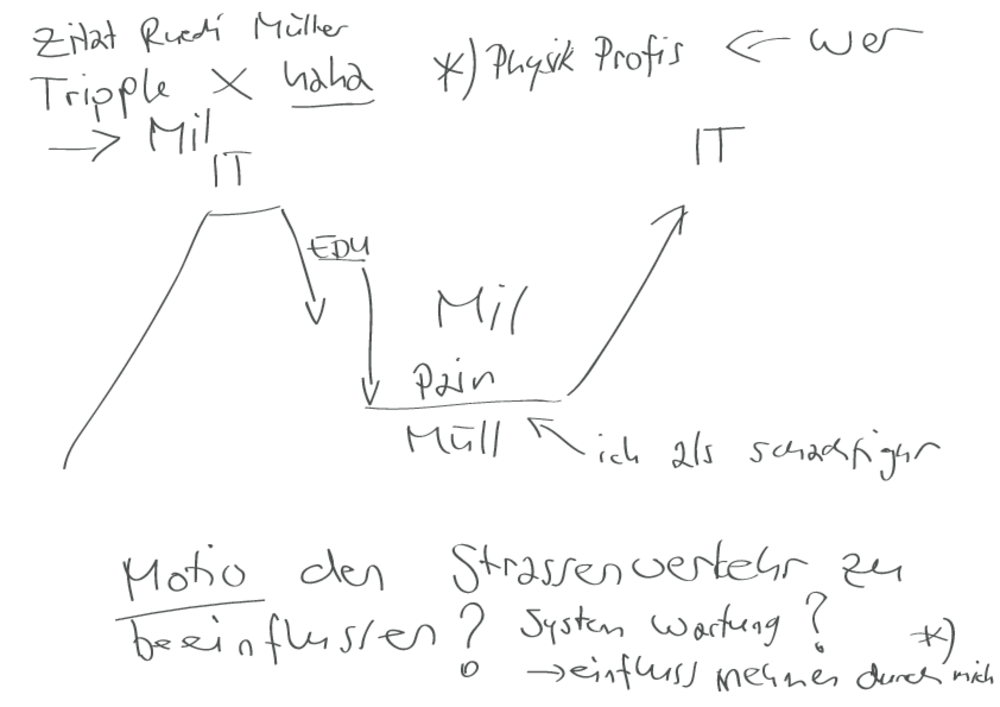 Zitat Ruedi Müller
Tripple X haha
*) Physik Profis ← wer
→ Mil
IT
IT
EDU
Mil
Pain
Müll
ich als schachfigur
Motiv den Strassenverkehr zu
beeinflussen? System Wartung?
*)
→ einfluss nehmen durch mich